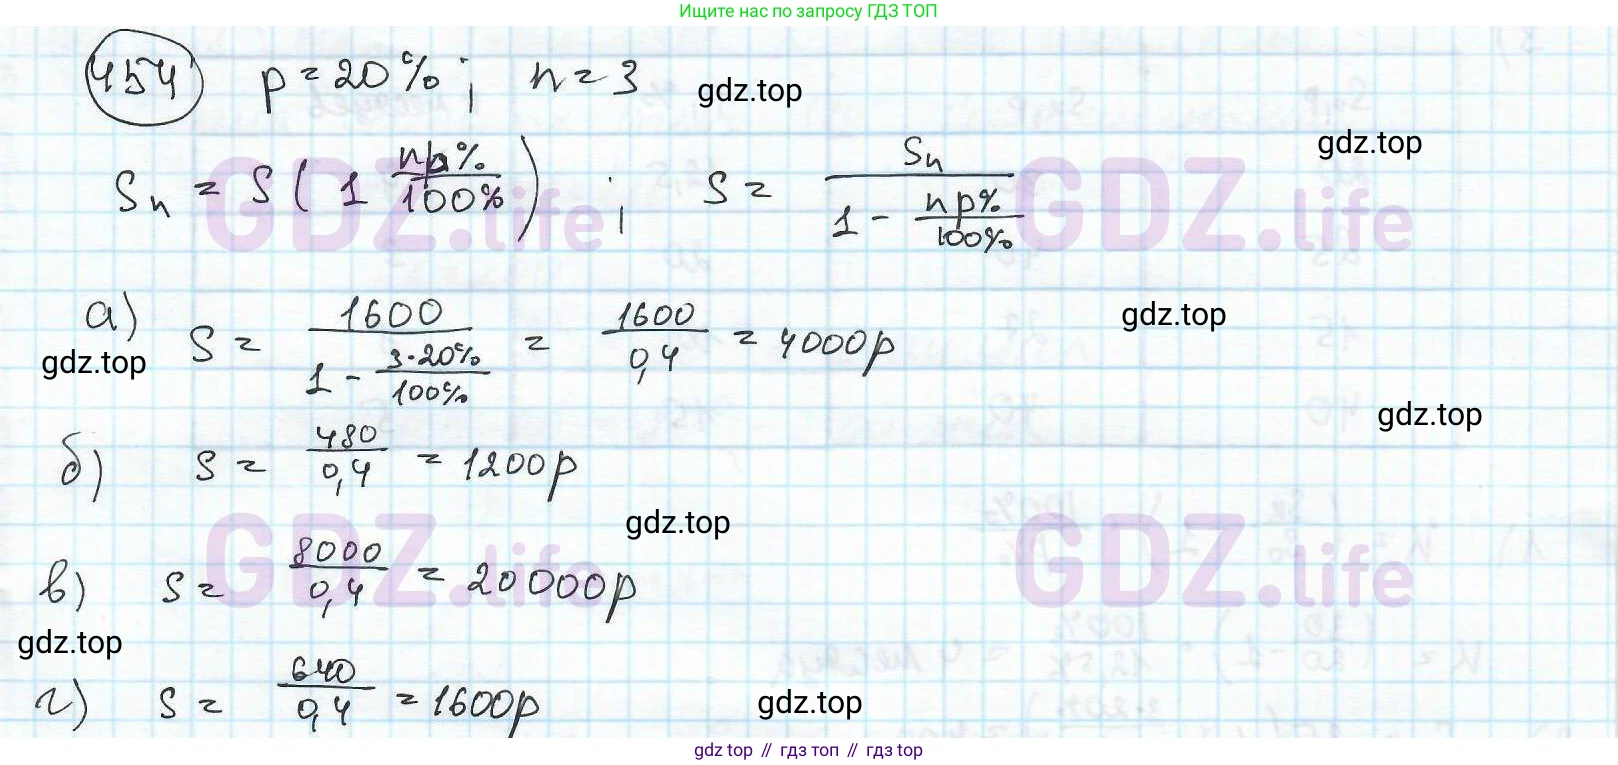 Ищите нас по запросу ГДЗ ТОП
454 p = 20%; n = 3
gdz.top
gdz.top
Sn = S(1 np%/100%); S = Sn/(1 - np%/100%)
GDZ.life GDZ.life
а) S = 1600/(1 - 3·20%/100%) = 1600/0,4 = 4000р
gdz.top
gdz.top
gdz.top
б) S = 480/0,4 = 1200р
gdz.top
GDZ.life GDZ.life
в) S = 8000/0,4 = 20000р
gdz.top
г) S = 640/0,4 = 1600р
gdz.top
gdz top // гдз топ // гдз top